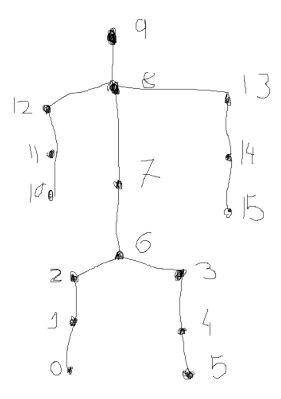 9
8
13
12
11
14
7
10
15
6
2
3
1
4
0
5